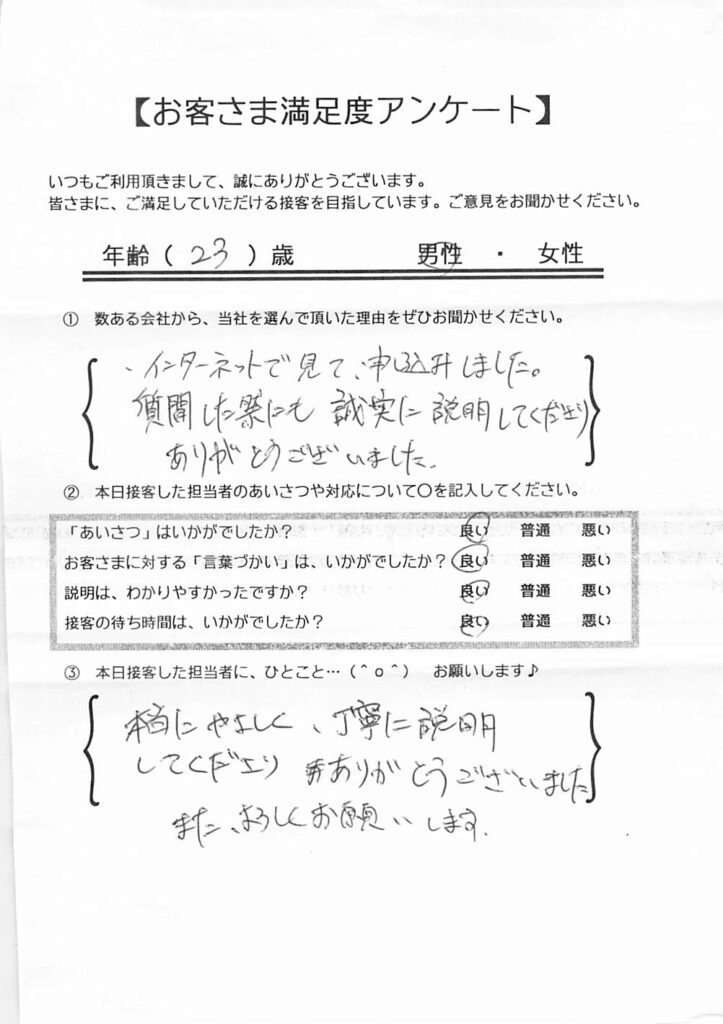 【お客さま満足度アンケート】
いつもご利用頂きまして、誠にありがとうございます。
皆さまに、ご満足していただける接客を目指しています。ご意見をお聞かせください。
年齢(23)歳 男性 ・ 女性
① 数ある会社から、当社を選んで頂いた理由をぜひお聞かせください。
・インターネットで見て、申込みしました。
質問した際にも誠実に説明してくださり
ありがとうございました。
② 本日接客した担当者のあいさつや対応について〇を記入してください。
「あいさつ」はいかがでしたか? 良い 普通 悪い
お客さまに対する「言葉づかい」は、いかがでしたか? 良い 普通 悪い
説明は、わかりやすかったですか? 良い 普通 悪い
接客の待ち時間は、いかがでしたか? 良い 普通 悪い
③ 本日接客した担当者に、ひとこと…(^o^) お願いします♪
本当にやさしく、丁寧に説明
してくださり ありがとうございました
また、よろしくお願いします。